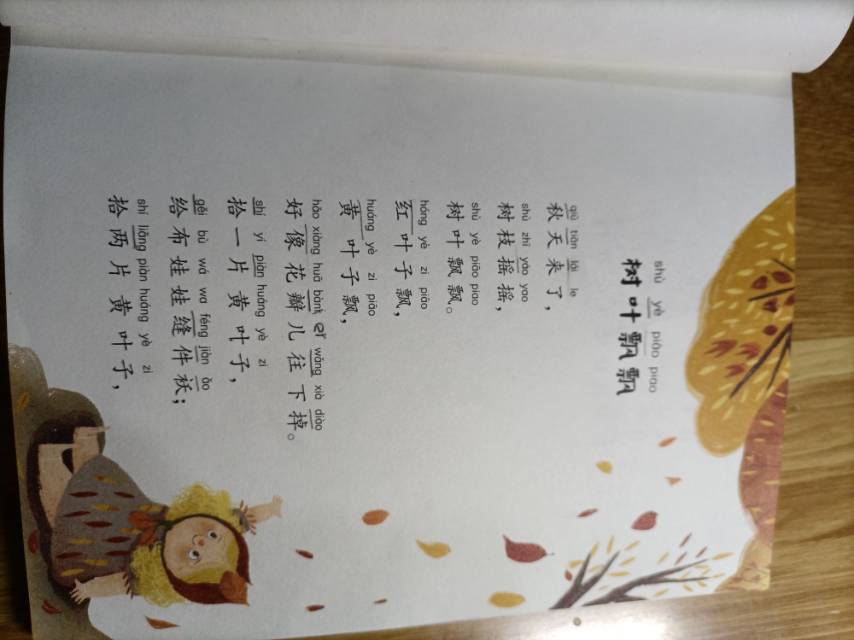 shù yè piāo piao
树叶飘飘
qiū tiān lái le
秋天来了，
shù zhī yáo yao
树枝摇摇，
shù yè piāo piao
树叶飘飘。
hóng yè zi piāo
红叶子飘，
huáng yè zi piāo
黄叶子飘，
hǎo xiàng huā bànr wǎng xià diào
好像花瓣儿往下掉。
shí yí piàn huáng yè zi
拾一片黄叶子，
gěi bù wá wa féng jiàn ǎo
给布娃娃缝件袄；
shí liǎng piàn huáng yè zi
拾两片黄叶子，